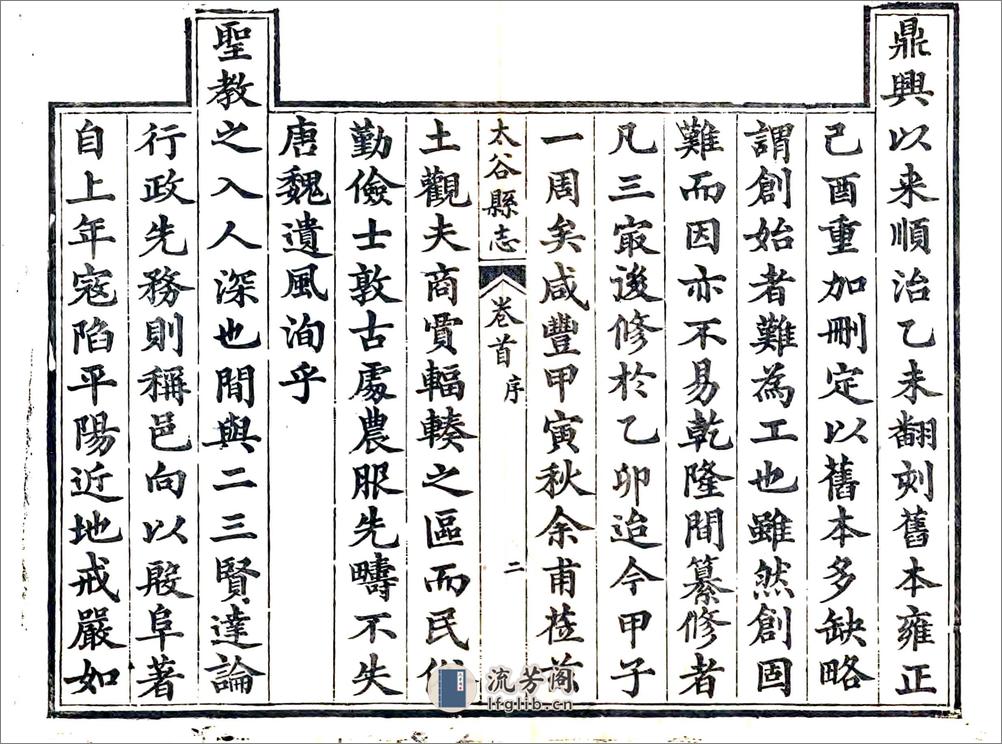 鼎興以来順治乙未翻刻舊本雍正
己酉重加刪定以舊本多缺略
謂創始者難為工也雖然創固
難而因亦不易乾隆間纂修者
凡三㝡後修於乙卯迨今甲子
一周矣咸豐甲寅秋余甫莅茲
太谷縣志 卷首 序 二
土觀夫商賈輻輳之區而民俗
勤儉士敦古處農服先疇不失
唐魏遺風洵乎
聖教之入人深也間與二三賢達論
行政先務則稱邑向以殷阜著
自上年寇陷平陽近地戒嚴如
流芳阁
lfglib.cn